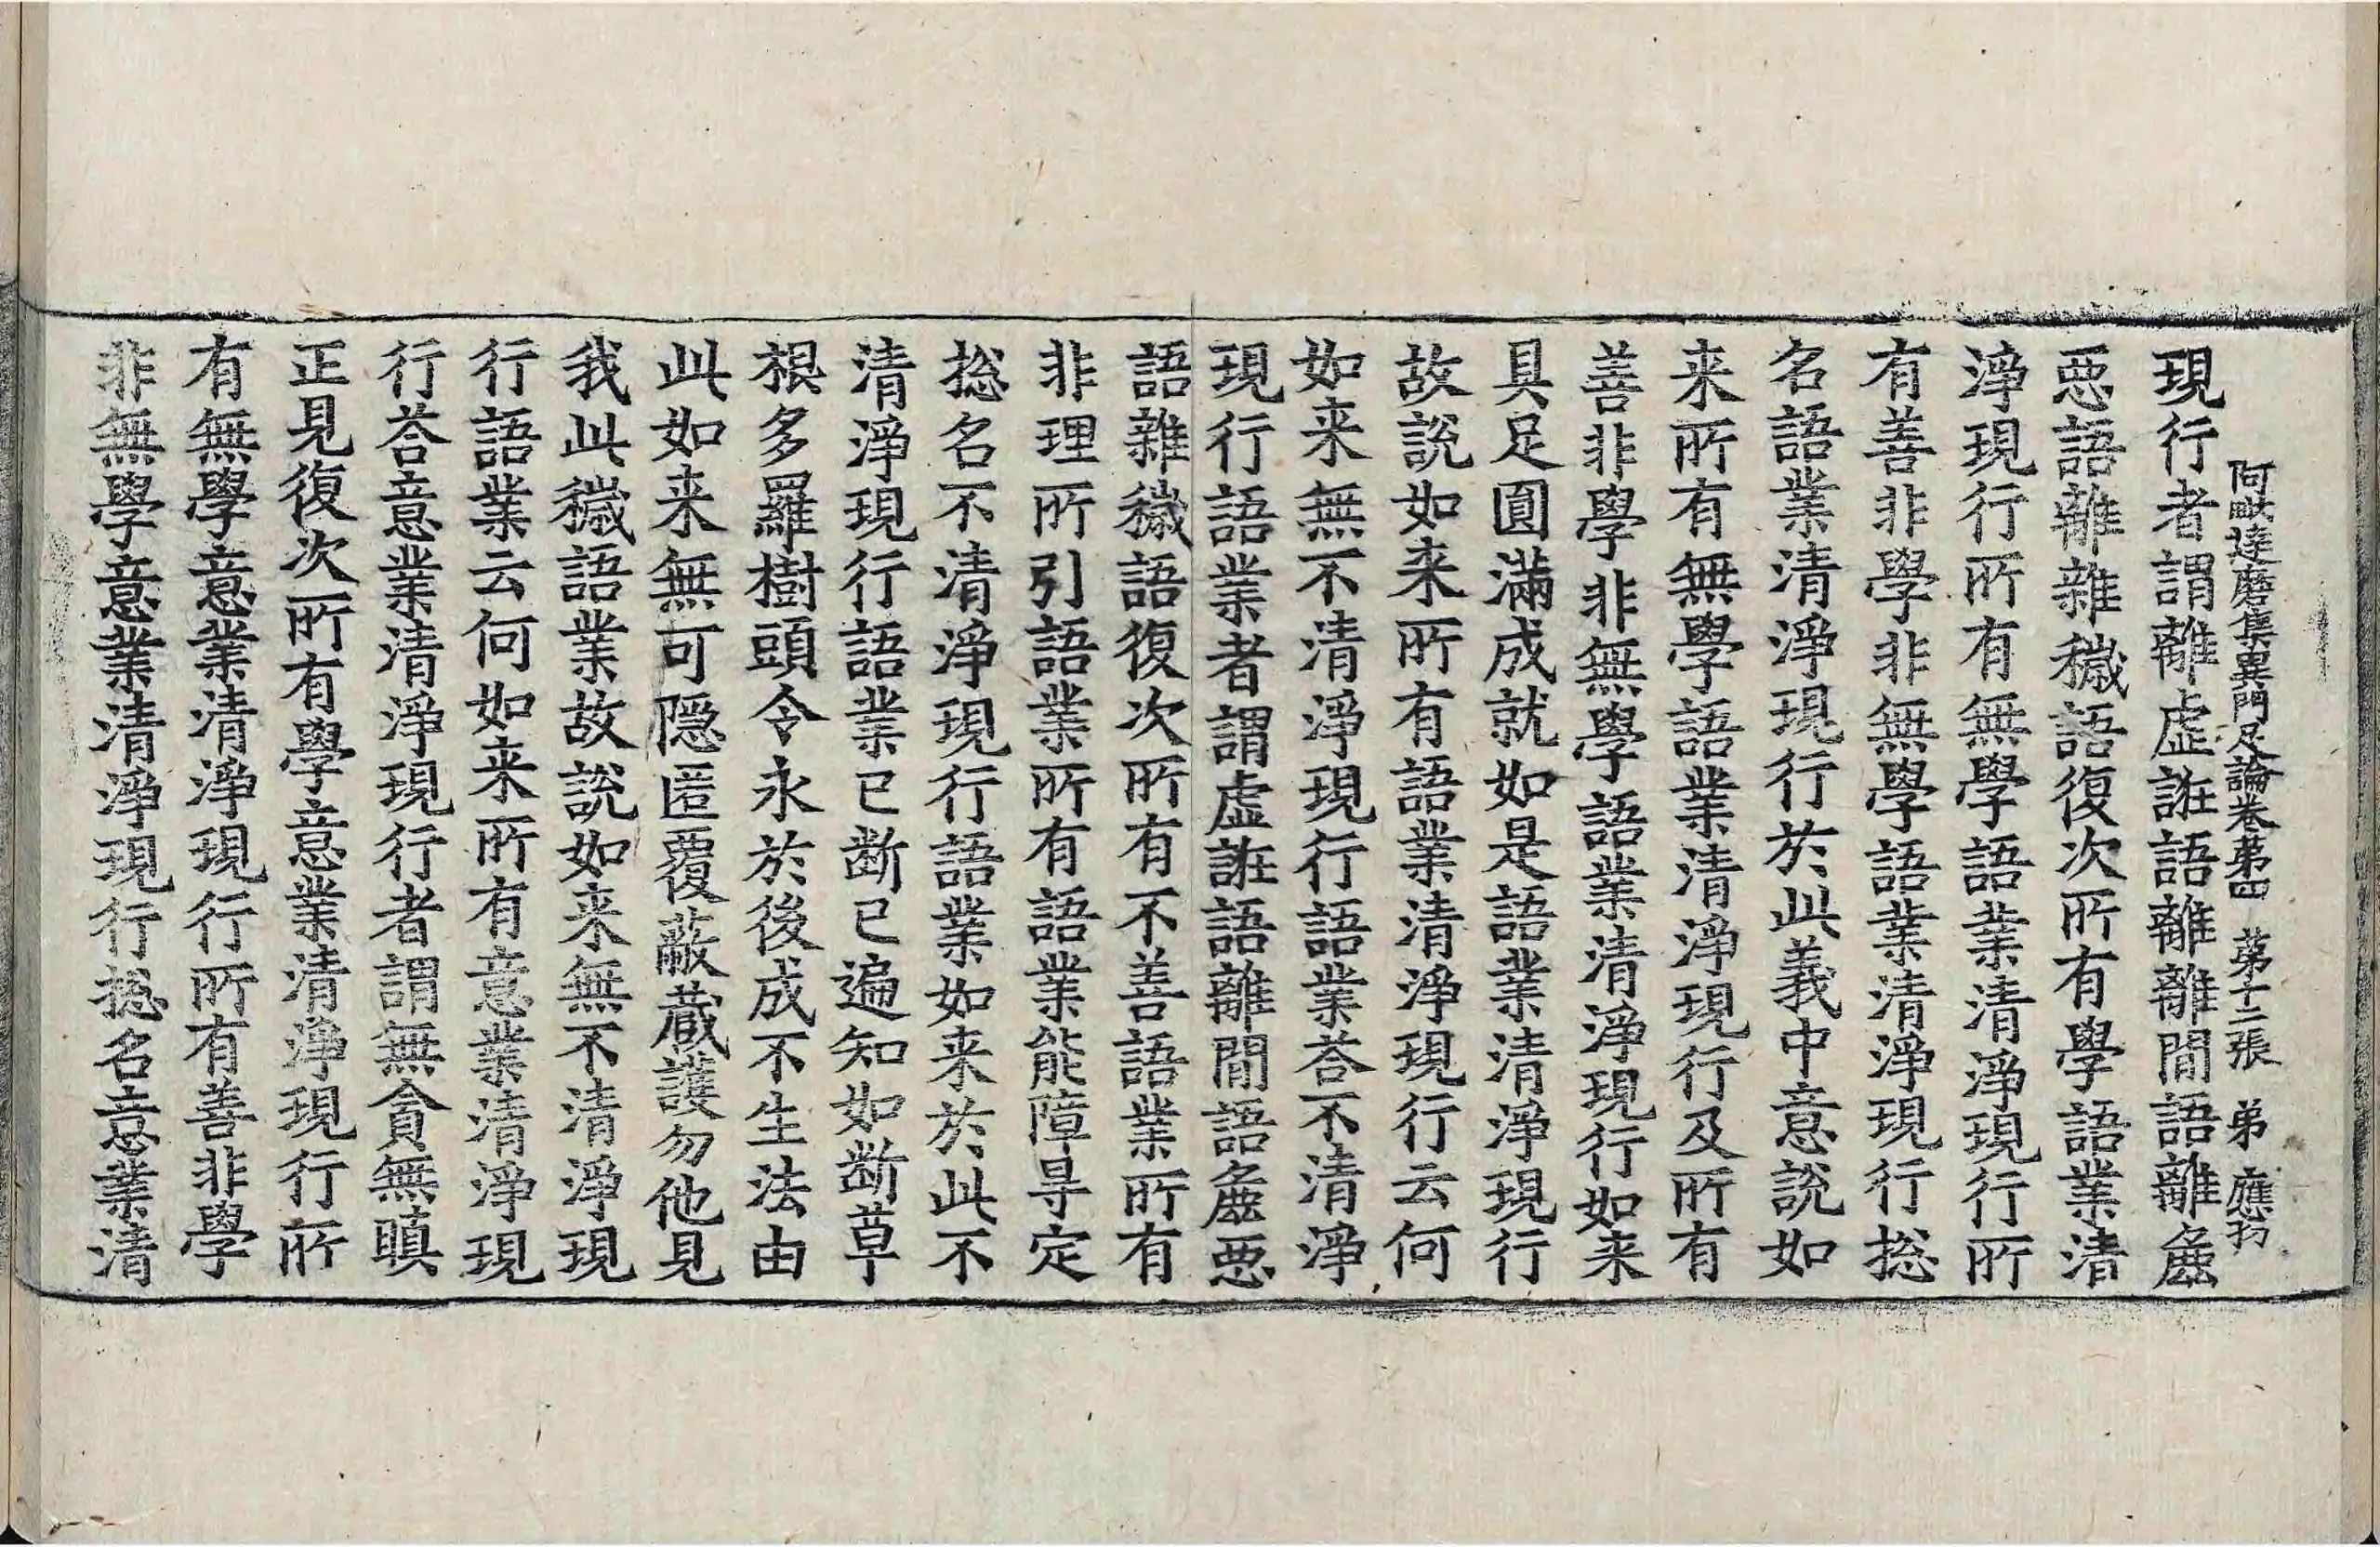 阿毗達磨集異門足論卷第四 第十二張 弟 應
現行者謂離虛誑語離離間語離麁
惡語離雜穢語復次所有學語業清
淨現行所有無學語業清淨現行所
有善非學非無學語業清淨現行捴
名語業清淨現行於此義中意說如
来所有無學語業清淨現行及所有
善非學非無學語業清淨現行如来
具足圓滿成就如是語業清淨現行
故說如来所有語業清淨現行云何
如来無不清淨現行語業荅不清淨
現行語業者謂虛誑語離間語麁惡
語雜穢語復次所有不善語業所有
非理所引語業所有語業能障㝵定
捴名不清淨現行語業如来於此不
清淨現行語業已斷已遍知如斷草
根多羅樹頭令永於後成不生法由
此如来無可隱匿覆蔽蔵護勿他見
我此穢語業故說如来無不清淨現
行語業云何如来所有意業清淨現
行荅意業清淨現行者謂無貪無瞋
正見復次所有學意業清淨現行所
有無學意業清淨現行所有善非學
非無學意業清淨現行捴名意業清